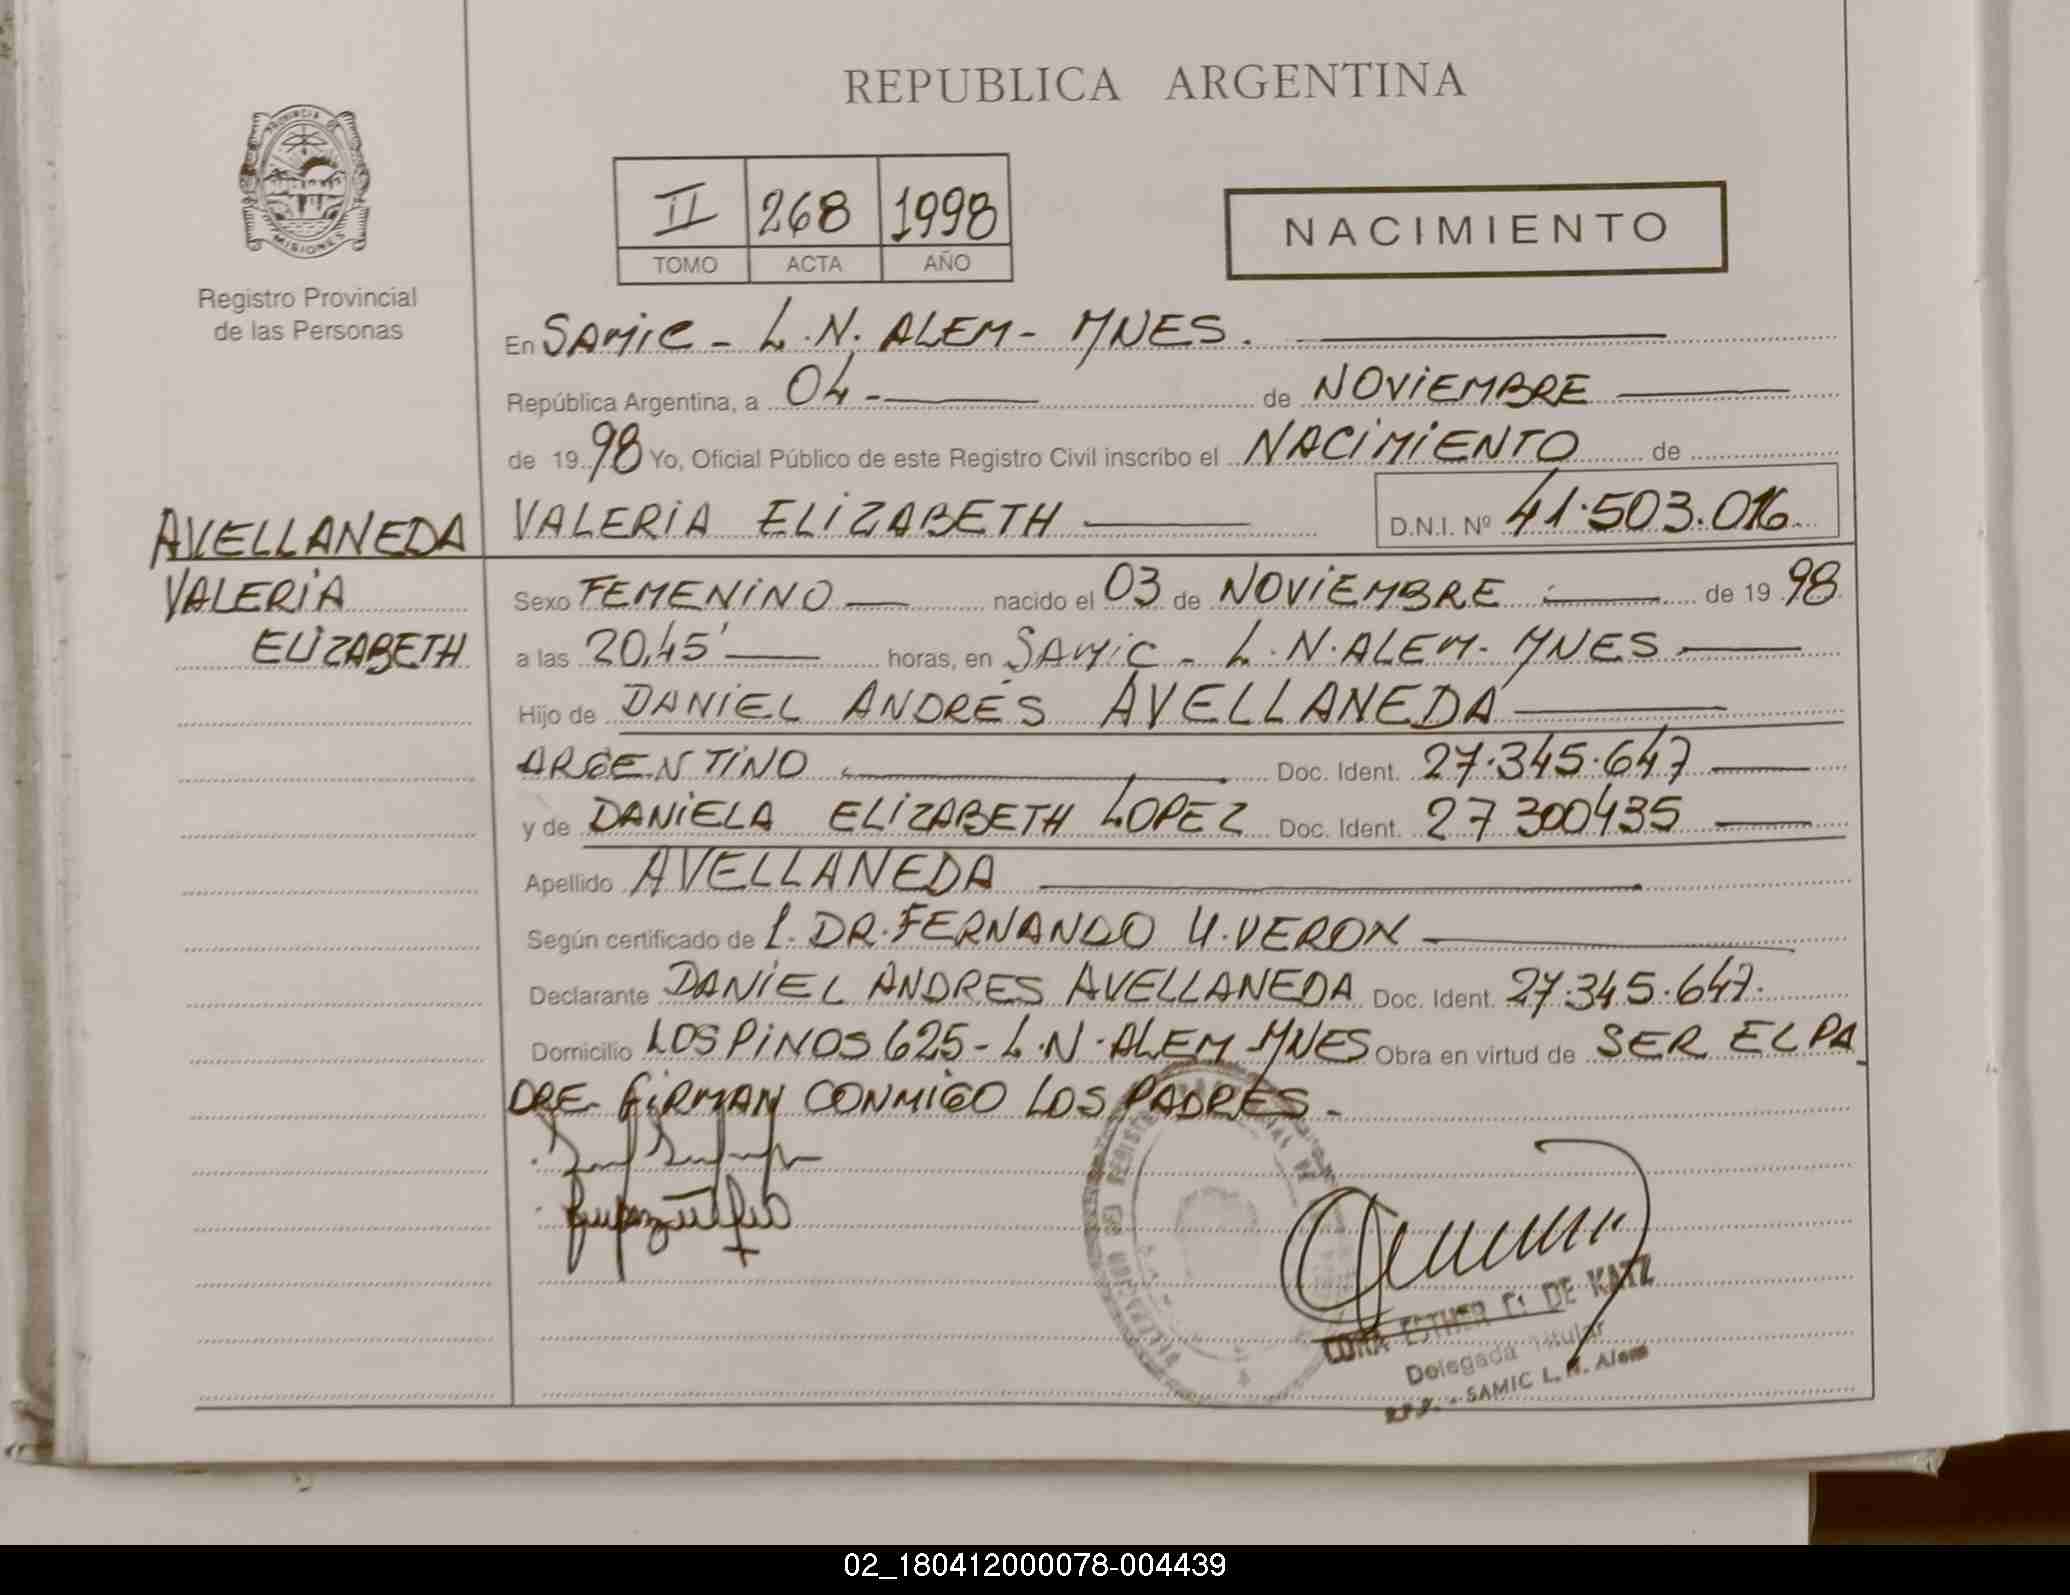 REPUBLICA ARGENTINA
PROVINCIA DE MISIONES
Registro Provincial
de las Personas
II 268 1998
TOMO ACTA AÑO
NACIMIENTO
En SAMIC - L.N. ALEM - MNES.
República Argentina, a 04 - de NOVIEMBRE
de 1998 Yo, Oficial Público de este Registro Civil inscribo el NACIMIENTO de
VALERIA ELIZABETH D.N.I. Nº 41.503.016
AVELLANEDA
VALERIA
ELIZABETH
Sexo FEMENINO nacido el 03 de NOVIEMBRE de 1998
a las 20,45' horas, en SAMIC - L.N. ALEM - MNES
Hijo de DANIEL ANDRÉS AVELLANEDA
ARGENTINO Doc. Ident. 27.345.647
y de DANIELA ELIZABETH LOPEZ Doc. Ident. 27 300435
Apellido AVELLANEDA
Según certificado de DR. FERNANDO VERON
Declarante DANIEL ANDRES AVELLANEDA Doc. Ident. 27.345.647.
Domicilio LOS PINOS 625 - L.N. ALEM - MNES Obra en virtud de SER EL PA
DRE. FIRMAN CONMIGO LOS PADRES. -
ESTHER DE KATZ
Delegada Titular
SAMIC L. N. Alem
02_180412000078-004439